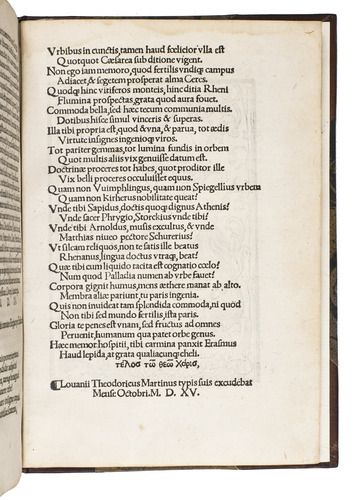 Vrbibus in cunctis, tamen haud fœlicior vlla est
Quotquot Cæsarea sub ditione vigent.
Non ego iam memoro, quod fertilis vndiq; campus
Adiacet, & segetem prosperat alma Ceres.
Quodq; hinc vitiferos monteis, hinc ditia Rheni
Flumina prospectas, grata quod aura fouet.
Commoda bella, sed hæc tecum communia multis.
Dotibus hisce simul vinceris & superas.
Illa tibi propria est, quod & vna, & parua, tot ædis
Virtute insignes ingenioq; viros.
Tot pariter gemmas, tot lumina fundis in orbem
Quot multis aliis vix genuisse datum est.
Doctrinæ proceres tot habes, quot proditor ille
Vix belli proceres occuluisset equus.
Quam non Vuimphlingus, quam non Spiegellius vrbem
Quam non Kirherus nobilitate queat?
Vnde tibi Sapidus, doctis quoq; dignus Athenis?
Vnde sacer Phrygio, Storckius vnde tibi?
Vnde tibi Arnoldus, musis excultus, & vnde
Matthias niueo pectore Schurerius?
Vt sileam reliquos, non te satis ille beatus
Rhenanus, lingua doctus vtraq; beat?
Quæ tibi cum liquido tacita est cognatio cœlo?
Num quod Palladia numen ab vrbe fauet?
Corpora gignit humus, mens æthere manat ab alto.
Membra aliæ pariunt, tu paris ingenia.
Quis non inuideat tam splendida commoda, ni quod
Non tibi sed mundo fertilis, ista paris.
Gloria te penes est vnam, sed fructus ad omnes
Peruenit, humanum qua patet orbe genus.
Hæc memor hospitii, tibi carmina panxit Erasmus
Haud lepida, at grata qualiacunq; cheli.
τέλος τῷ θεῷ Χάρις,
Louanii Theodoricus Martinus typis suis excudebat
Mense Octobri. M. D. XV.